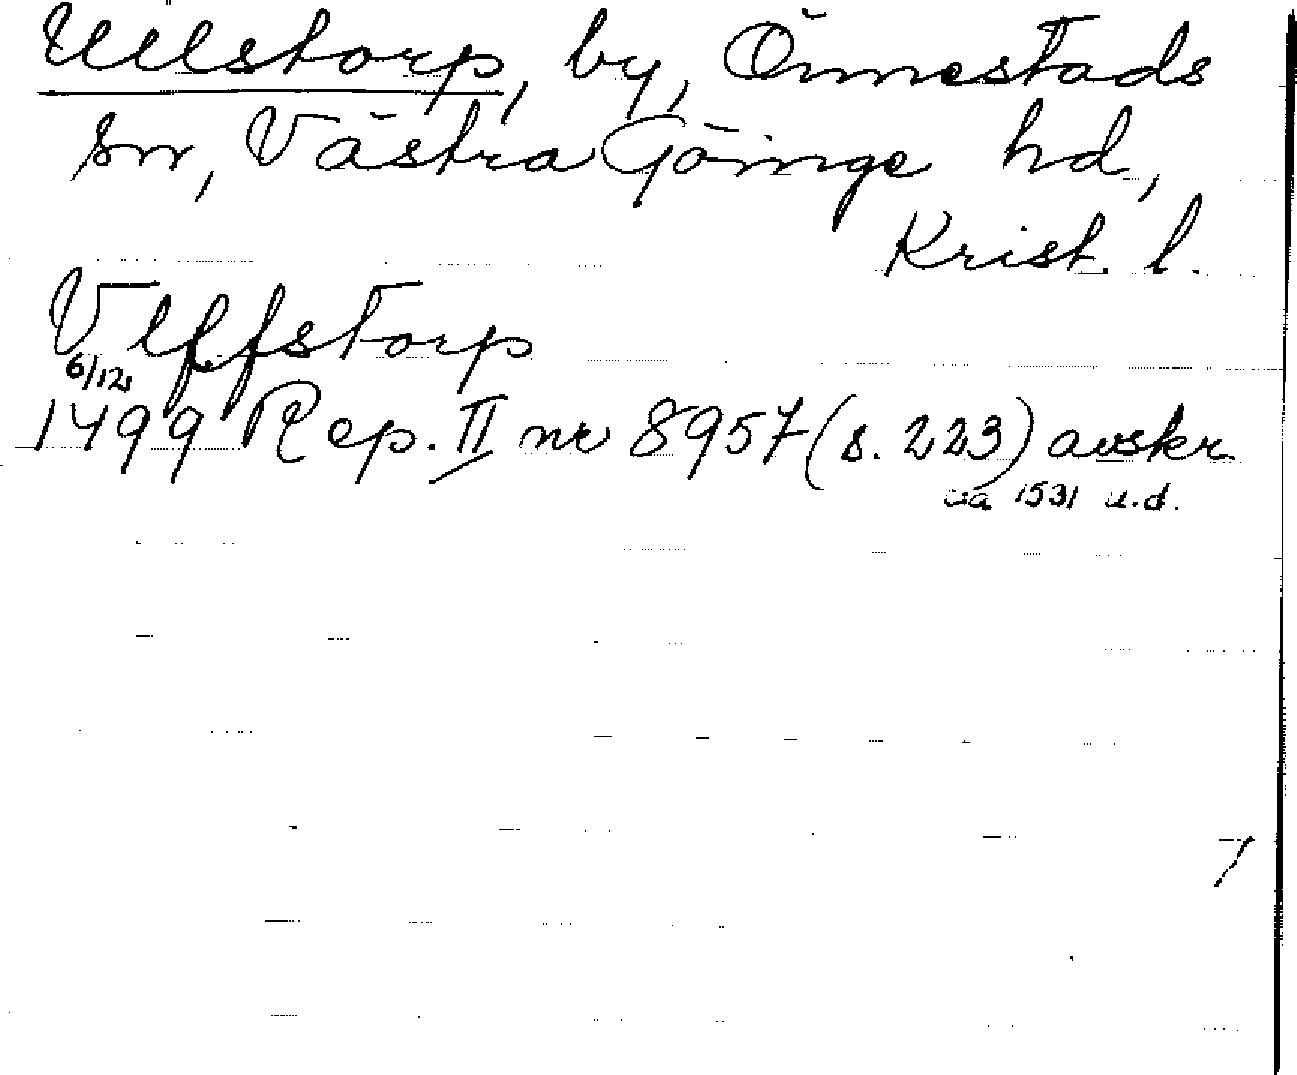 Ullstorp, by, Önnestads
sn, Västra Göinge hd,
Krist. l.
Vlffstorp
6/12
1499 Rep. II nr 8957 (s. 223) avskr.
ca 1531 u.d.